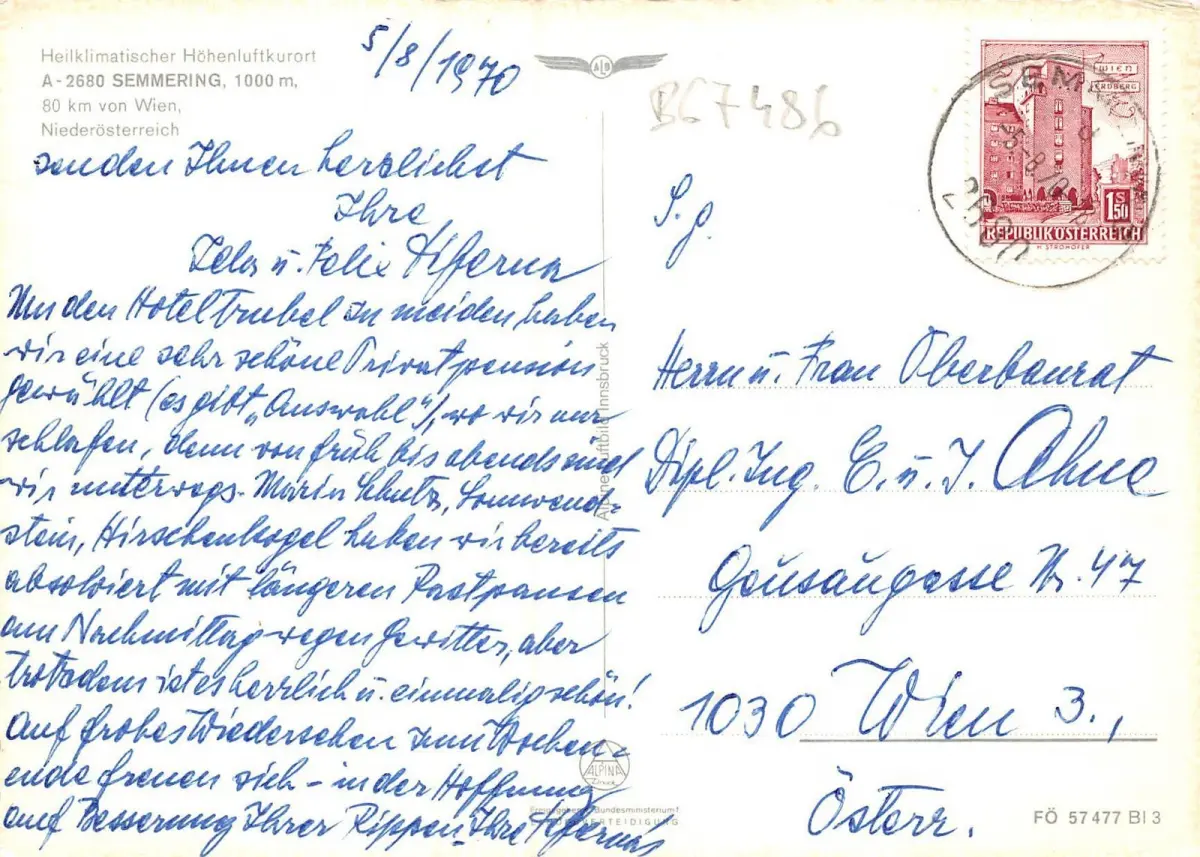 Heilklimatischer Höhenluftkurort
A-2680 SEMMERING, 1000 m,
80 km von Wien,
Niederösterreich
5/8/1970
senden Ihnen herzlichst
Ihre
u. Felix
Um den Hoteltrubel zu meiden haben
wir eine sehr schöne Privatpension
gewählt (es gibt „Auswahl"), wo wir nur
schlafen, denn von früh bis abends sind
wir unterwegs. Maria Schutz, Sonnwend-
stein, Hirschenkogel haben wir bereits
absolviert mit längeren Rastpausen
am Nachmittag wegen Gewitter, aber
trotzdem ist es herrlich u. einmalig schön!
Auf frohes Wiedersehen zum Wochen-
ende freuen sich – in der Hoffnung
auf Besserung Ihrer Rippen Ihre
ALB
B67486
WIEN
ERDBERG
1 S 50
REPUBLIK ÖSTERREICH
H. STROHOFER
SEMMERING
2680
S. g.
Herrn u. Frau Oberbaurat
Dipl. Ing. E. u. I. Ahne
Geusaugasse Nr. 47
1030 Wien 3.,
Österr.
Alpine Luftbild Innsbruck
ALPINA
Druck
Bundesministerium f.
VERTEIDIGUNG
FÖ 57477 Bl 3